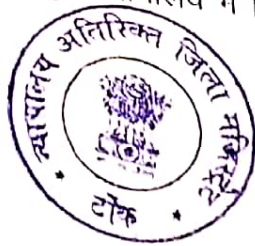 न्यायालय अतिरिक्त जिला मजिस्ट्रेट
टोंक